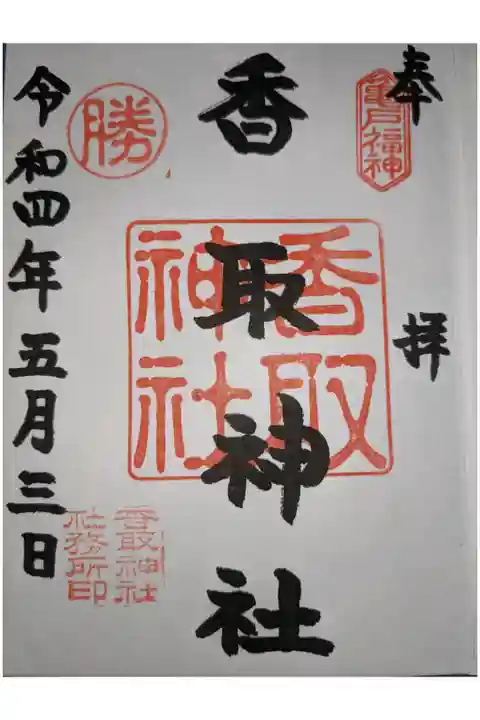 奉拝
亀戸福神
香取神社
香取神社
勝
令和四年五月三日
香取神社
社務所印